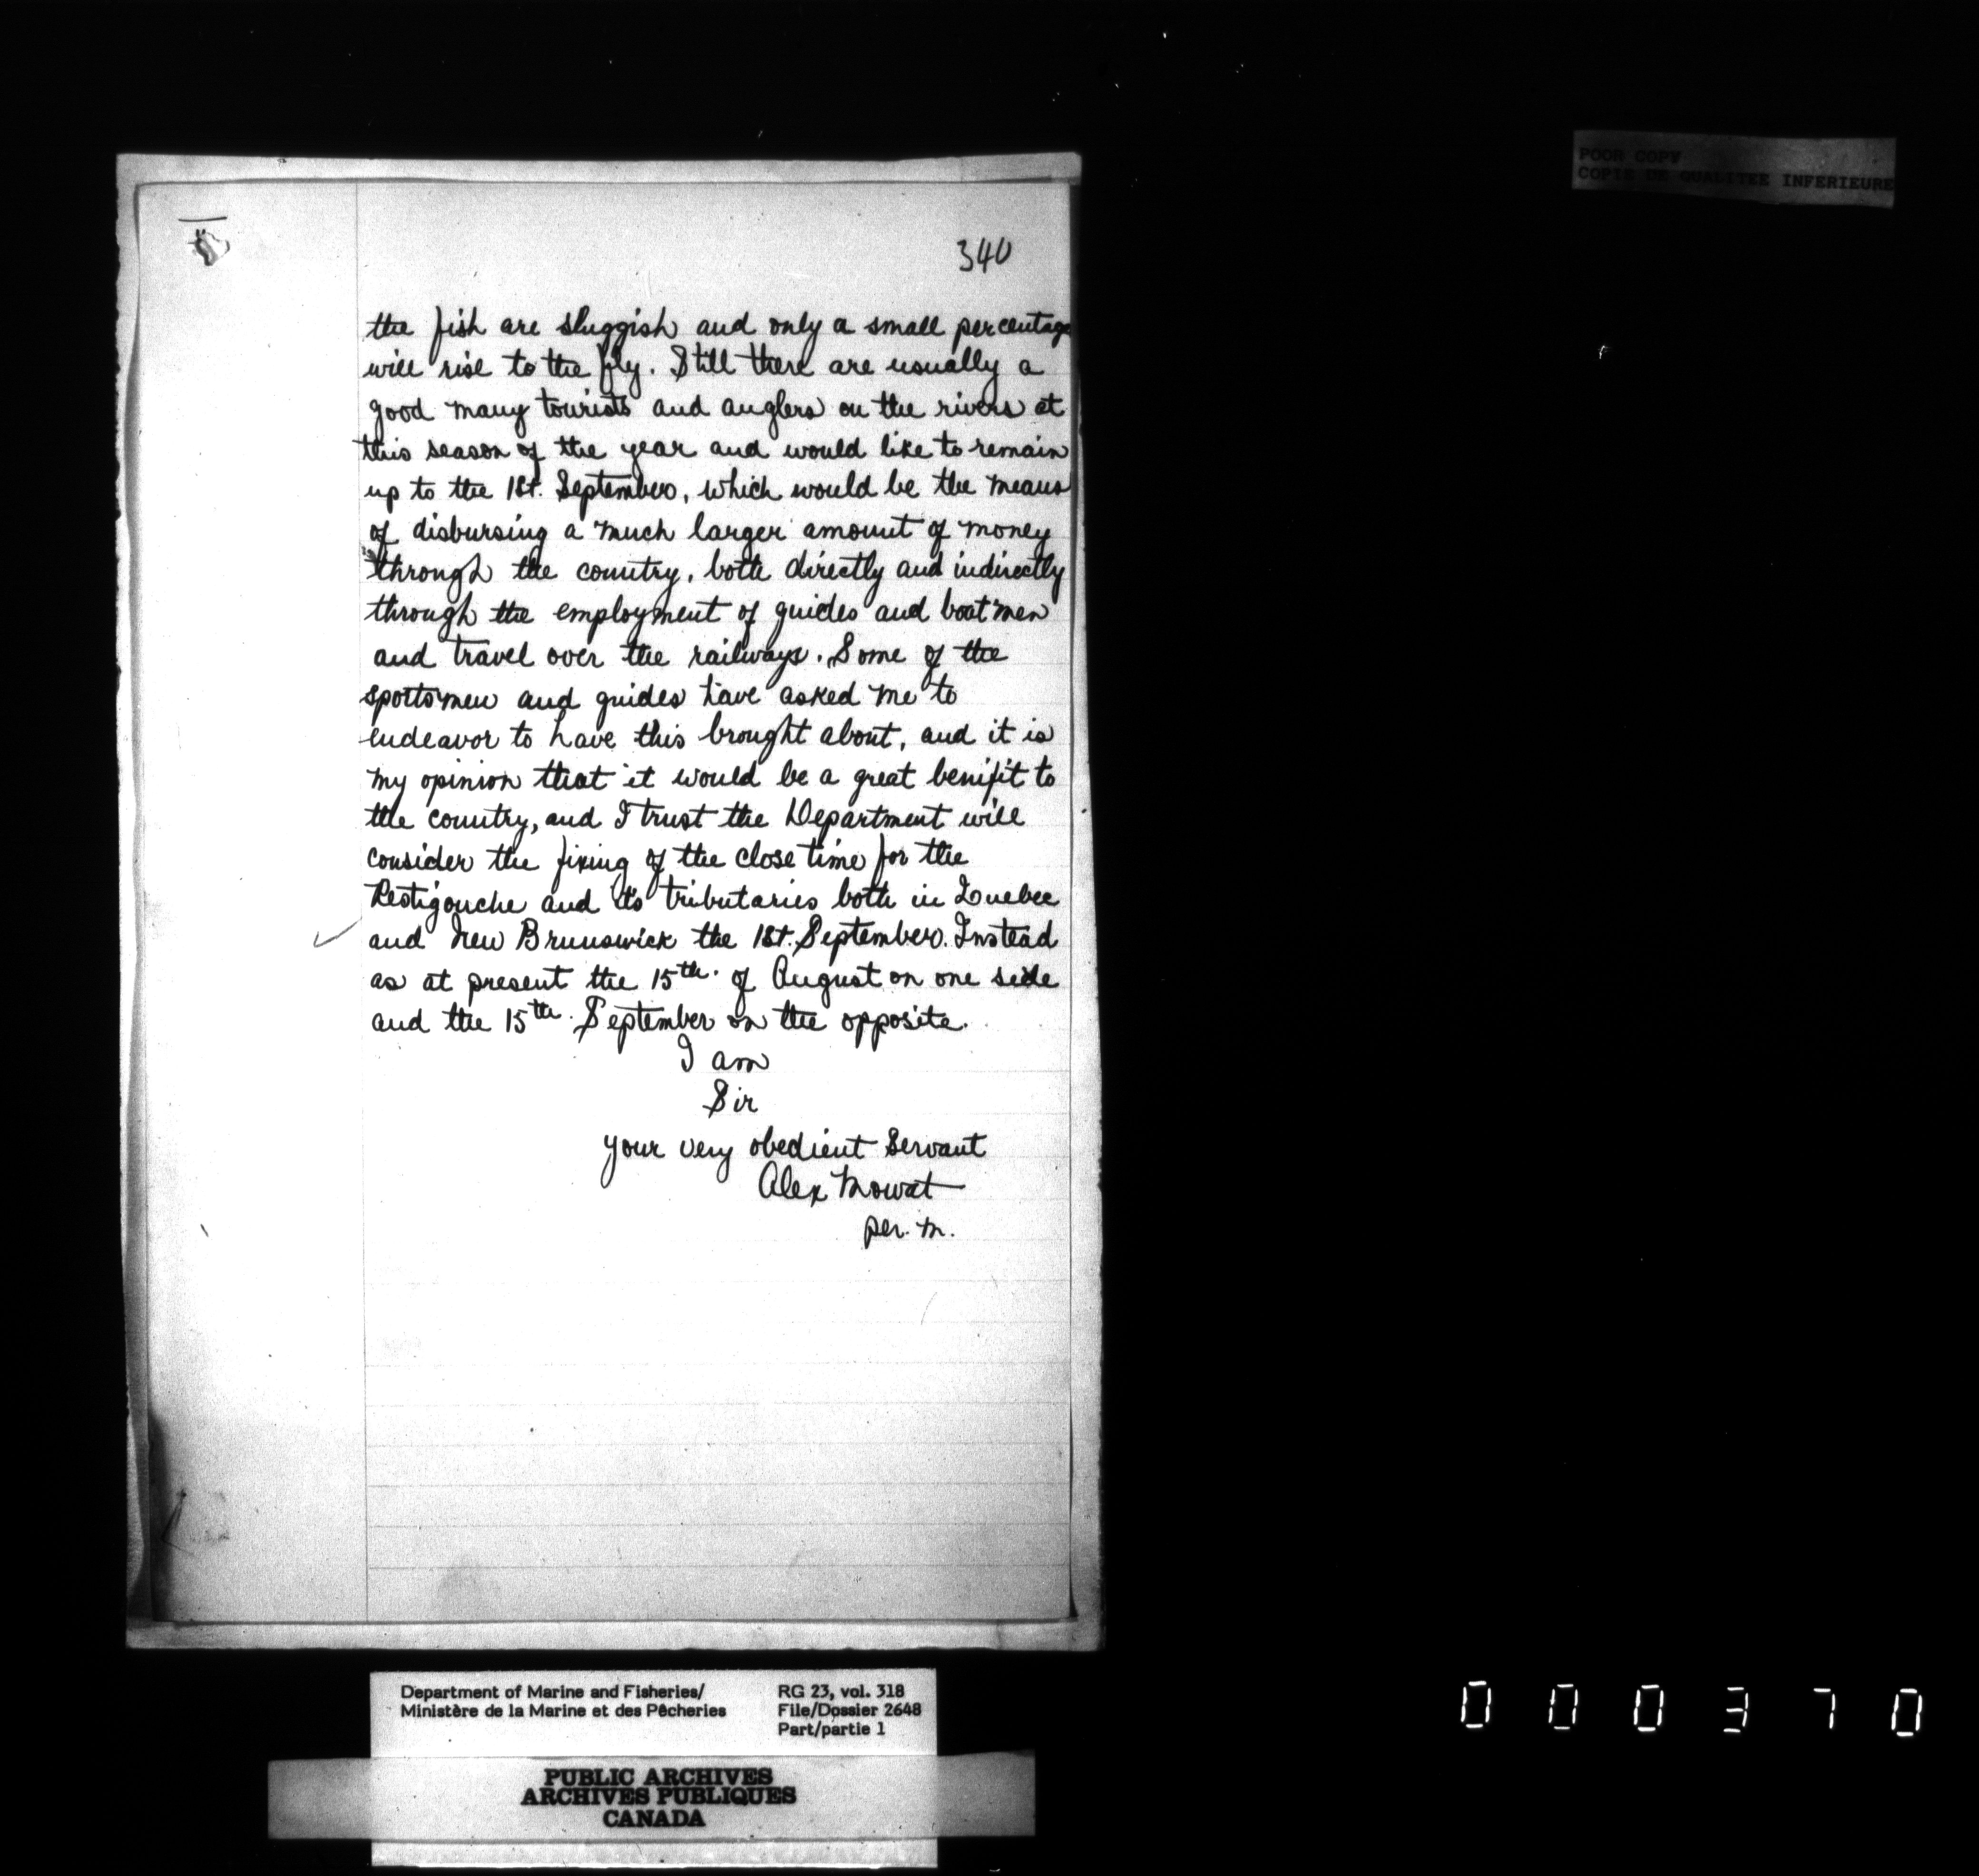 POOR COPY
COPIE DE QUALITEE INFERIEURE
340
the fish are sluggish and only a small percentage
will rise to the fly. Still there are usually a
good many tourists and anglers on the rivers at
this season of the year and would like to remain
up to the 1st. September, which would be the means
of disbursing a much larger amount of money
through the country, both directly and indirectly
through the employment of guides and boatmen
and travel over the railways. Some of the
sportsmen and guides have asked me to
endeavor to have this brought about, and it is
my opinion that it would be a great benifit to
the country, and I trust the Department will
consider the fixing of the close time for the
Restigouche and its tributaries both in Quebec
and New Brunswick the 1st. September. Instead
as at present the 15th. of August on one side
and the 15th. September on the opposite.
I am
Sir
your very obedient Servant
Alex Mowat
per. M.
Department of Marine and Fisheries/
Ministère de la Marine et des Pêcheries
RG 23, vol. 318
File/Dossier 2648
Part/partie 1
PUBLIC ARCHIVES
ARCHIVES PUBLIQUES
CANADA
000370